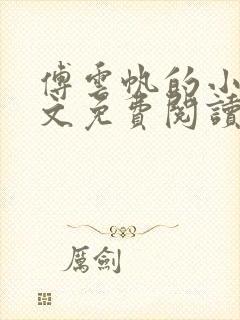 傅雲帆的小
文免費閱讀
厲劍